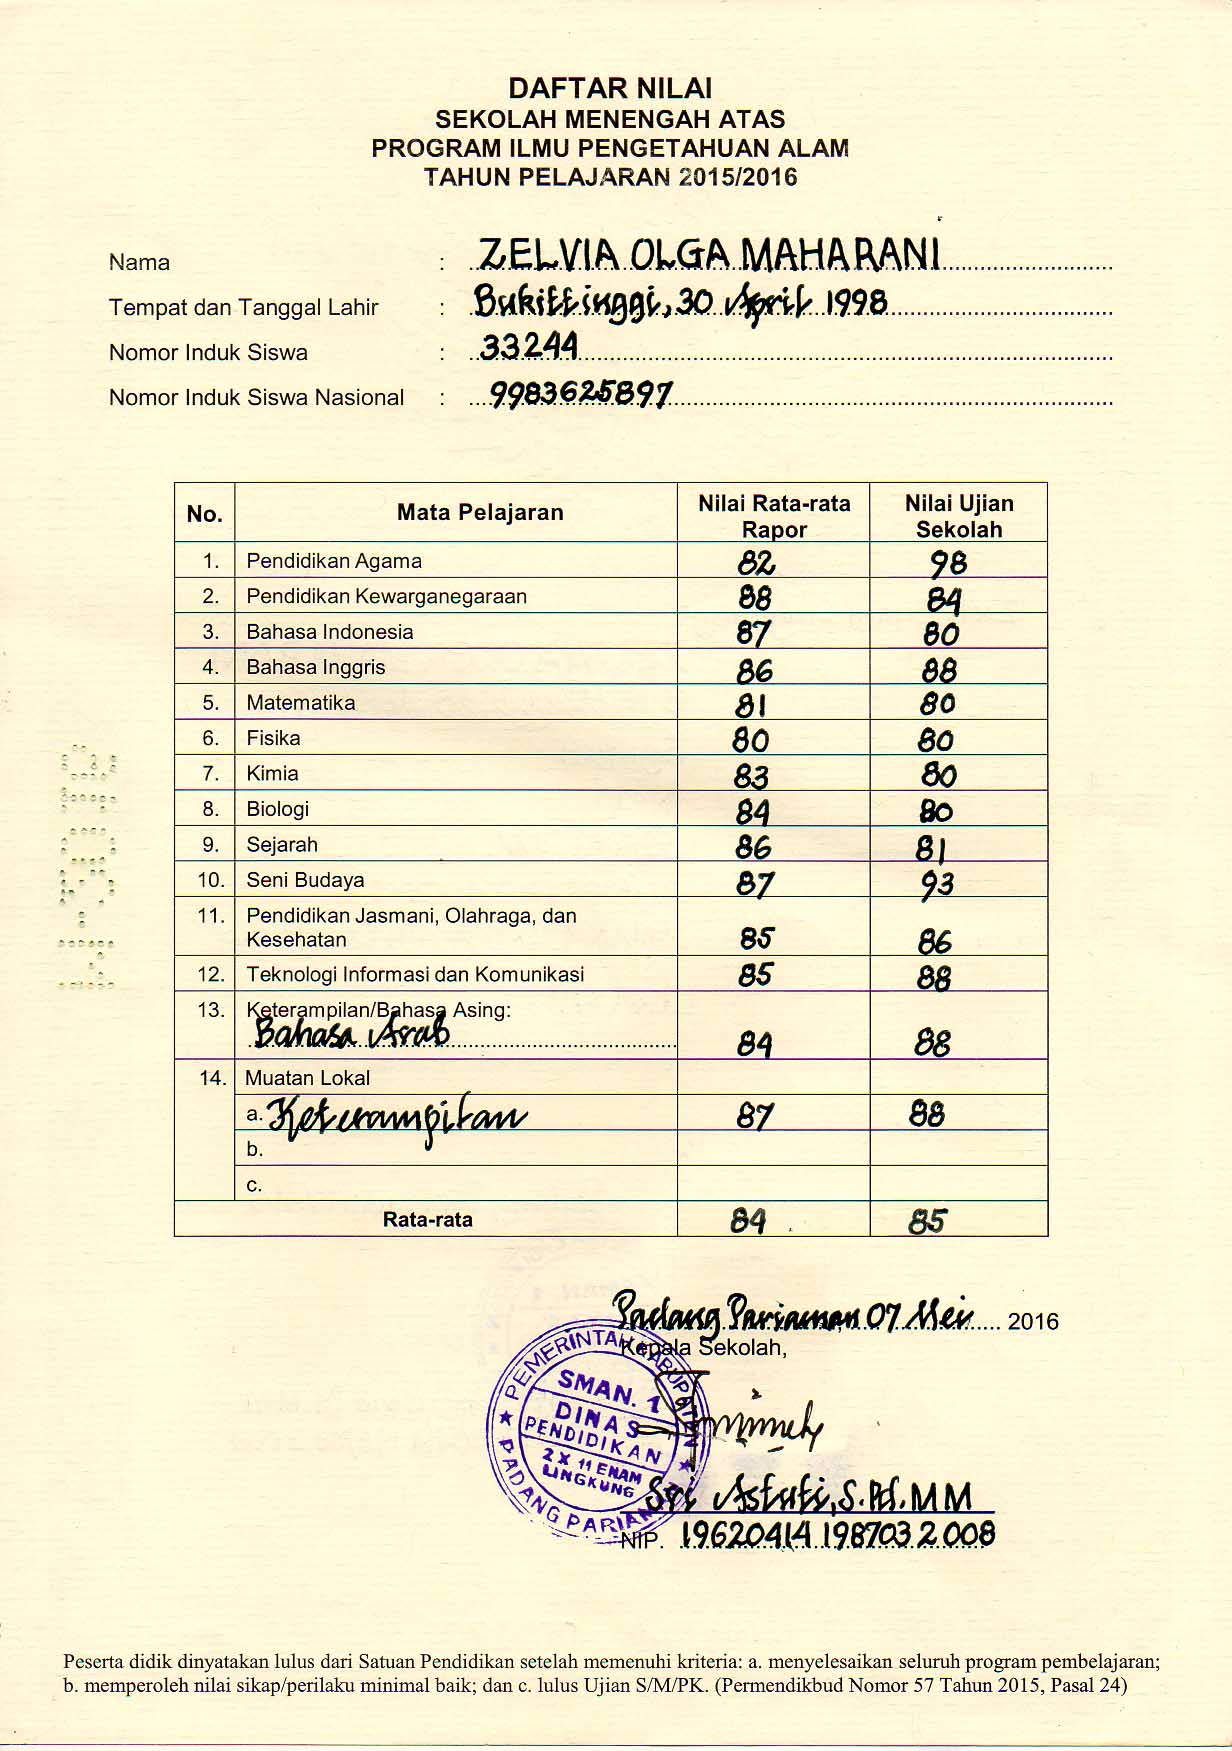 DAFTAR NILAI
SEKOLAH MENENGAH ATAS
PROGRAM ILMU PENGETAHUAN ALAM
TAHUN PELAJARAN 2015/2016
Nama : ZELVIA OLGA MAHARANI
Tempat dan Tanggal Lahir : Bukittinggi, 30 April 1998
Nomor Induk Siswa : 33244
Nomor Induk Siswa Nasional : 9983625897
No. Mata Pelajaran Nilai Rata-rata Rapor Nilai Ujian Sekolah
1. Pendidikan Agama 82 98
2. Pendidikan Kewarganegaraan 88 84
3. Bahasa Indonesia 87 80
4. Bahasa Inggris 86 88
5. Matematika 81 80
6. Fisika 80 80
7. Kimia 83 80
8. Biologi 84 80
9. Sejarah 86 81
10. Seni Budaya 87 93
11. Pendidikan Jasmani, Olahraga, dan
Kesehatan 85 86
12. Teknologi Informasi dan Komunikasi 85 88
13. Keterampilan/Bahasa Asing:
Bahasa Arab 84 88
14. Muatan Lokal
a. Keterampilan 87 88
b.
c.
Rata-rata 84 85
Padang Pariaman, 07 Mei 2016
Kepala Sekolah,
PEMERINTAH KABUPATEN
SMAN. 1
DINAS
PENDIDIKAN
2 X 11 ENAM
LINGKUNG
PADANG PARIAMAN
Sri Astuti, S.Pd. MM
NIP. 19620414 198703 2 008
Peserta didik dinyatakan lulus dari Satuan Pendidikan setelah memenuhi kriteria: a. menyelesaikan seluruh program pembelajaran;
b. memperoleh nilai sikap/perilaku minimal baik; dan c. lulus Ujian S/M/PK. (Permendikbud Nomor 57 Tahun 2015, Pasal 24)